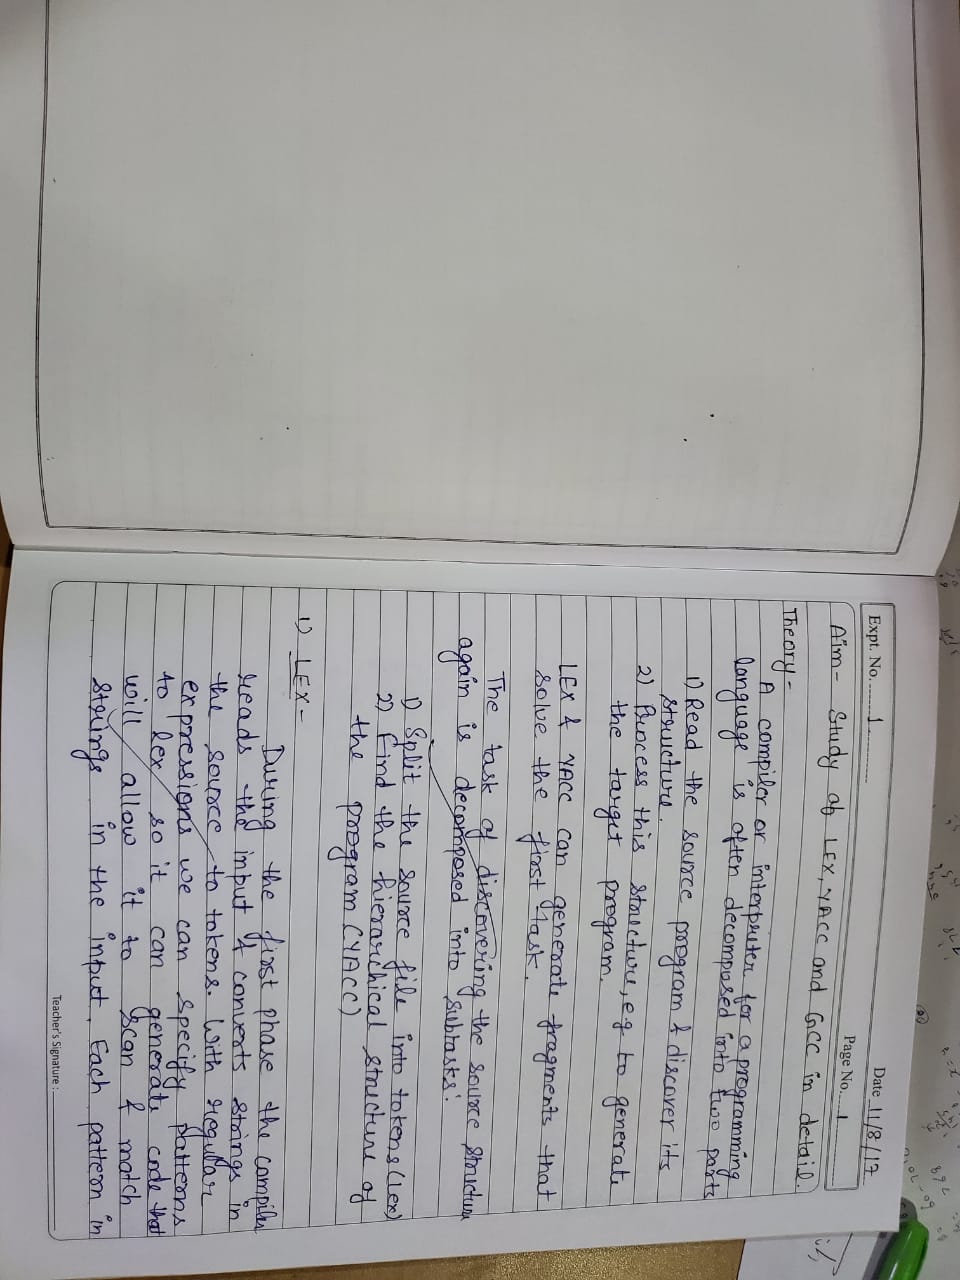 Expt. No. 1
Date 11/8/17
Page No. 1
Aim- Study of LEX, YAcc and Gcc in detail.
Theory-
A compiler or interpreter for a programming
language is often decomposed into two parts
1) Read the source program & discover its
structure.
2) Process this structure, e.g to generate
the target program.
LEX & YACC can generate fragments that
solve the first task.
The task of discovering the source structure
again is decomposed into subtasks:
1) Split the source file into tokens (Lex)
2) Find the hierarchical structure of
the program (YACC)
1) LEX-
During the first phase the compiler
reads the input & converts strings in
the source to tokens. With regular
expressions we can specify patterns
to lex so it can generate code that
will allow it to scan & match
strings in the input. Each pattern in
Teacher's Signature :